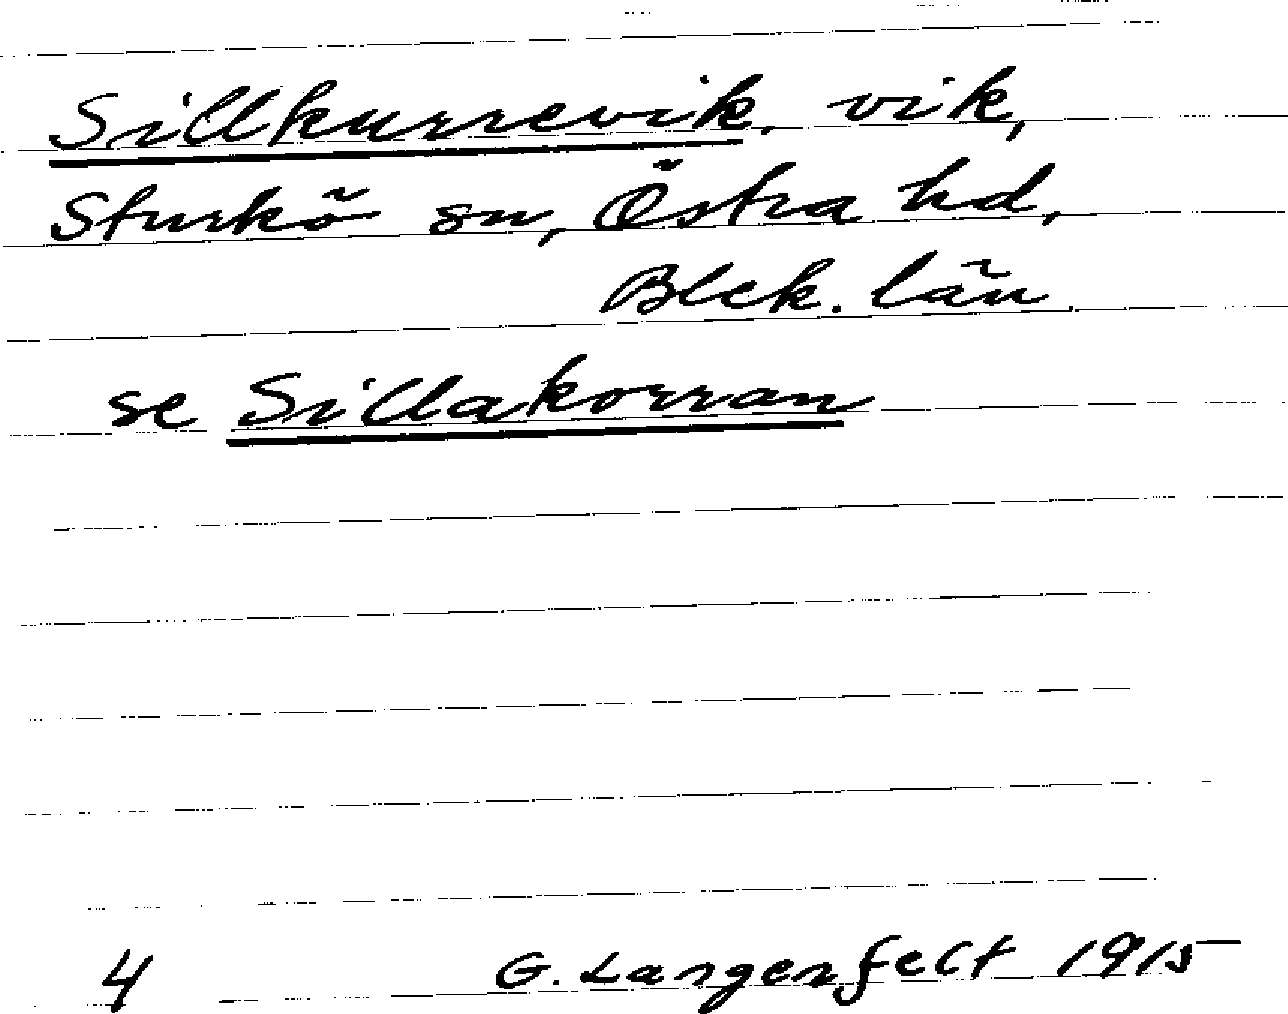 Sillkurrevik, vik,
Sturkö sn, Östra hd,
Blek. län.
se Sillakorran
4 G. Langenfelt 1915